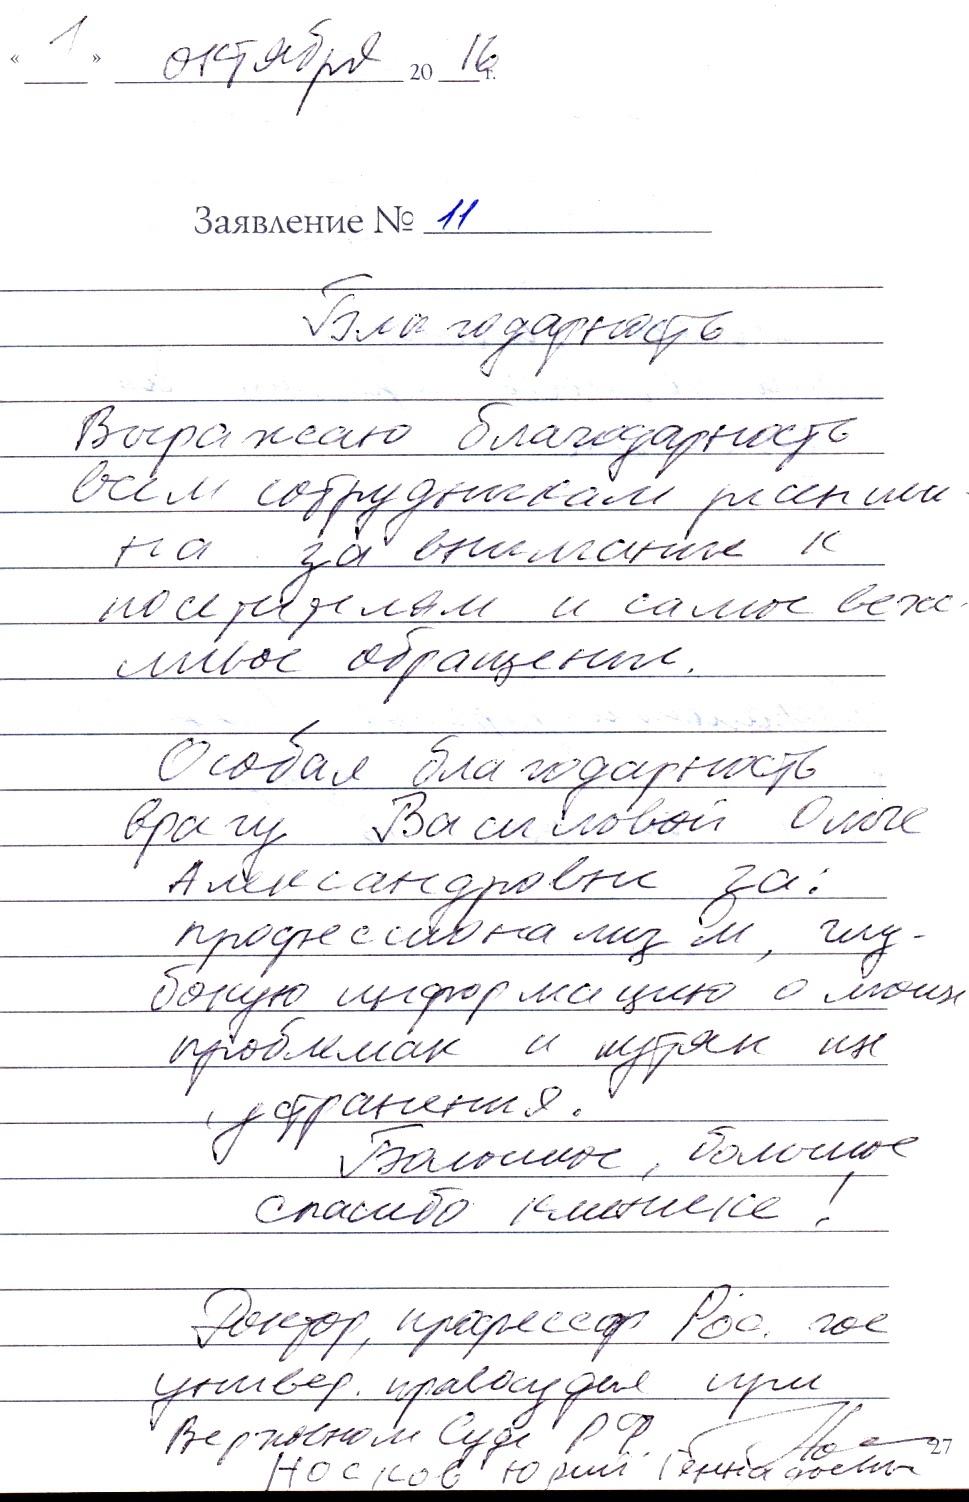 « 1 » октября 20 16 г.
Заявление № 11
Благодарность
Выражаю благодарность
всем сотрудникам
на за внимание к
посетителям и самое веж-
ливое обращение.
Особая благодарность
врачу Василовой Ольге
Александровне за:
профессионализм, глу-
бокую информацию о моих
проблемах и путях их
устранения.
Большое, большое
спасибо клинике!
Доктор, профессор Рос. гос
универ. правосудия при
Верховном Суде РФ
Носков Юрий Геннадьевич
27